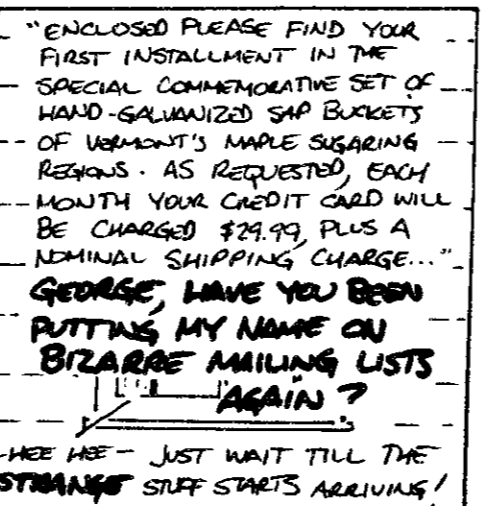 "ENCLOSED PLEASE FIND YOUR
FIRST INSTALLMENT IN THE
SPECIAL COMMEMORATIVE SET OF
HAND-GALVANIZED SAP BUCKETS
OF VERMONT'S MAPLE SUGARING
REGIONS. AS REQUESTED, EACH
MONTH YOUR CREDIT CARD WILL
BE CHARGED $29.99, PLUS A
NOMINAL SHIPPING CHARGE..."
GEORGE, HAVE YOU BEEN
PUTTING MY NAME ON
BIZARRE MAILING LISTS
AGAIN?
HEE HEE - JUST WAIT TILL THE
STRANGE STUFF STARTS ARRIVING!